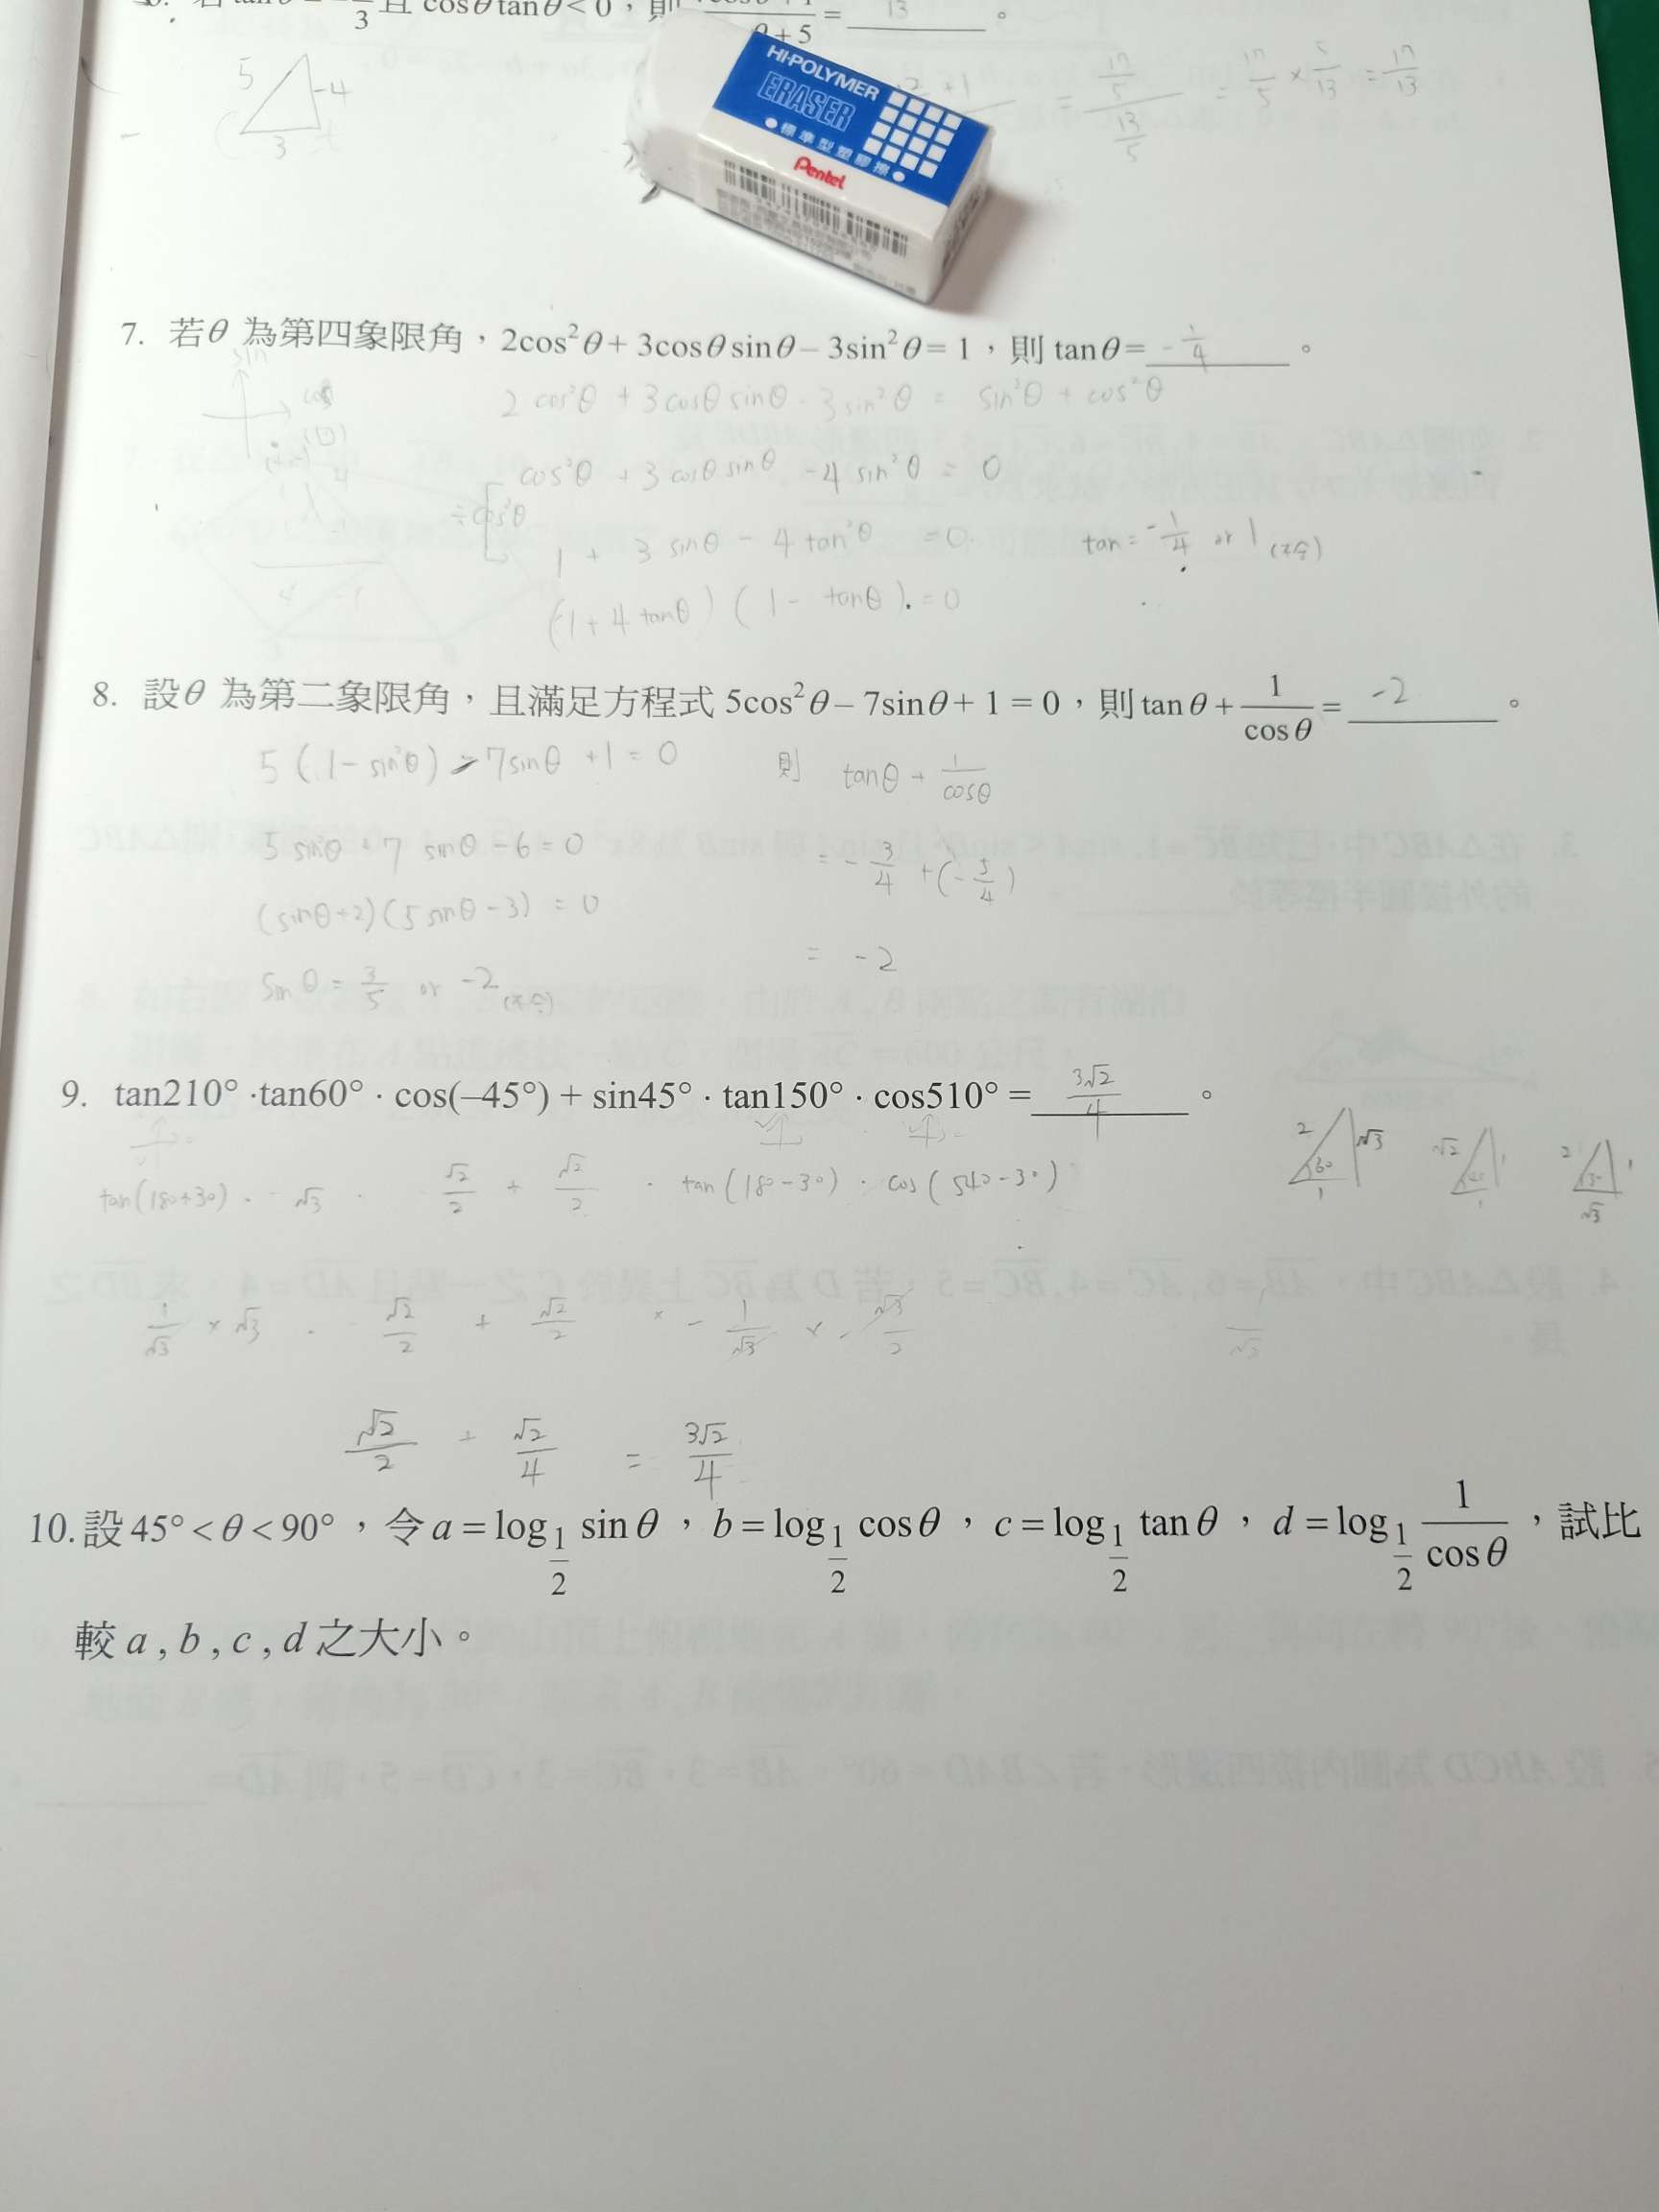 3 且 cosθtanθ<0,則 = 13 。
θ+5
5 -4
3
2 +1 = 17/5 / 13/5 = 17/5 × 5/13 = 17/13
HI-POLYMER
ERASER
標準型塑膠擦
Pentel
7. 若θ 為第四象限角,2cos²θ+3cosθsinθ–3sin²θ=1,則 tanθ= -1/4 。
sin
cos
2 cos²θ + 3 cosθ sinθ - 3 sin²θ = sin²θ + cos²θ
cos²θ + 3 cosθ sinθ - 4 sin²θ = 0
÷cos²θ
1 + 3 sinθ - 4 tan²θ = 0 tan = -1/4 or 1 (不合)
(1 + 4 tanθ) (1 - tanθ) = 0
8. 設θ 為第二象限角,且滿足方程式 5cos²θ–7sinθ+1=0,則 tanθ+1/cosθ= -2 。
5 (1 - sin²θ) - 7sinθ + 1 = 0 則 tanθ + 1/cosθ
5 sin²θ + 7 sinθ - 6 = 0 = -3/4 + (-5/4)
(sinθ+2)(5 sinθ - 3) = 0
= -2
sinθ = 3/5 or -2 (不合)
9. tan210°·tan60°·cos(–45°)+sin45°·tan150°·cos510°= 3√2/4 。
2 √3 60 1 √2 1 1 2 1 30 √3
tan(180+30) · √3 · √2/2 + √2/2 · tan(180-30) · cos(540-30)
1/√3 × √3 · √2/2 + √2/2 × - 1/√3 × - √3/2
√3
√2/2 + √2/4 = 3√2/4
10. 設 45°<θ<90°,令 a=log1/2 sinθ,b=log1/2 cosθ,c=log1/2 tanθ,d=log1/2 1/cosθ,試比
較 a,b,c,d 之大小。